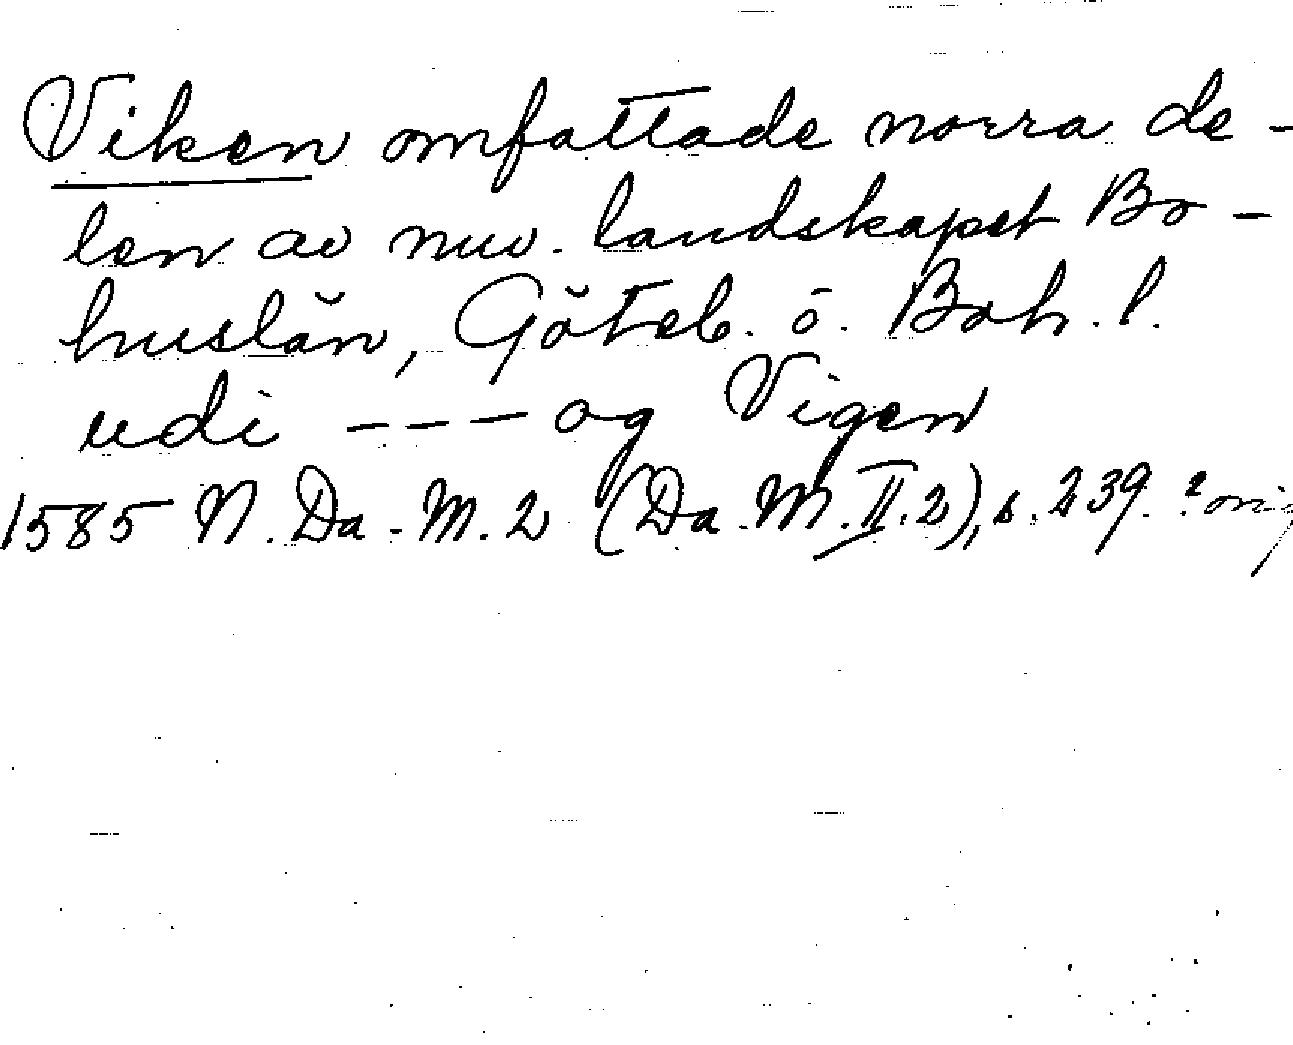 Viken omfattade norra de-
len av nuv. landskapet Bo-
huslän, Göteb. o. Boh. l.
udi --- og Vigen
1585 N. Da. M. 2 (Da. M. II. 2), s. 239. ? orig